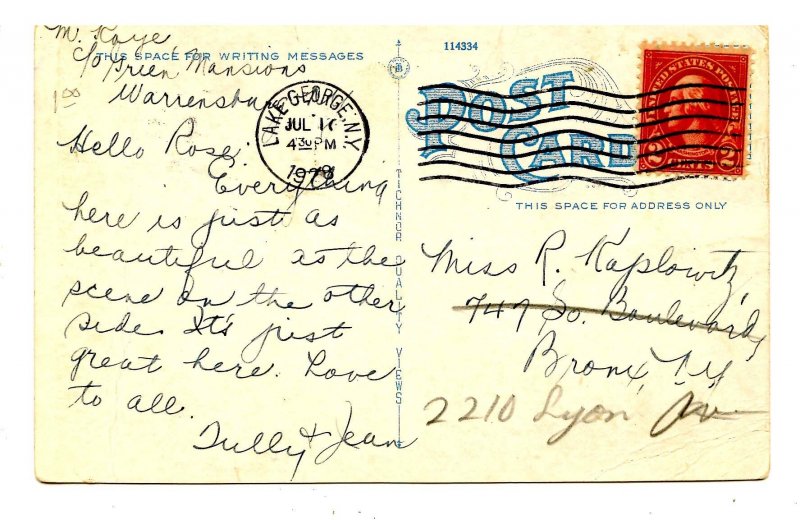 M. Kaye
THIS SPACE FOR WRITING MESSAGES
c/o Green Mansions
Warrensburg
100
Hello Rose,
Everything
here is just as
beautiful as the
scene on the other
side. It's just
great here. Love
to all.
Tully & Jean
LAKE GEORGE, N.Y.
JUL
4 30 PM
114334
POST
CARD
UNITED STATES POSTAGE
2 CENTS 2
THIS SPACE FOR ADDRESS ONLY
TICHNOR QUALITY VIEWS
Miss R. Kaplowitz,
747 So. Boulevard,
Bronx, N.Y.
2210 Lyon Av